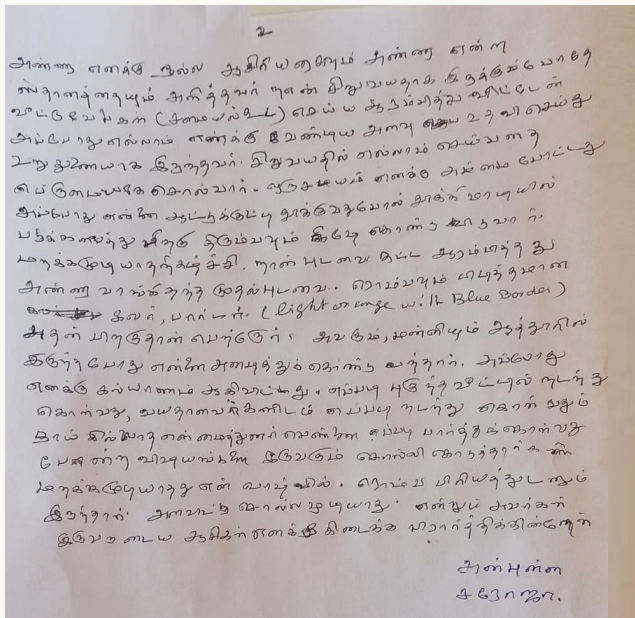 2
அண்ணா எனக்கு நல்ல ஆசிரியரையும் அண்ணா என்ற
ஸ்தானத்தையும் அளித்தவர் நான் சிறுவயதாக இருக்கும்போதே
வீட்டுவேலைகள் (சமையல்உட) செய்ய ஆரம்பித்து விட்டேன்
அப்போது எல்லாம் எனக்கு வேண்டிய அளவு உதவி செய்து
உறுதுணையாக இருந்தவர். சிறுவயதில் எல்லாம் செய்வதை
பெருமையாக சொல்வார். ஒருசமயம் எனக்கு அம்மை போட்டது
அப்போது என்னை ஆட்டுக்குட்டி தூக்குவதுபோல் தூக்கி மாடியில்
படுக்கவைத்து பிறகு திரும்பவும் கீழே கொண்டு விடுவார்.
மறக்கமுடியாதநிகழ்ச்சி. நான் புடவை கட்ட ஆரம்பித்தது
அண்ணா வாங்கித்தந்த முதல்புடவை. ரொம்பவும் பிடித்தமான
கலர், பார்டர். (light orange with Blue Border)
அதன் பிறகுதான் மற்றது. அவரும், மன்னியும் ஆத்தூரில்
இருந்தபோது என்னை அழைத்துக்கொண்டு வந்தார். அப்போது
எனக்கு கல்யாணம் ஆகிவிட்டது. எப்படி புகுந்த வீட்டில் நடந்து
கொள்வது, வயதானவர்களிடம் எப்படி நடந்து கொள்வதும்
தாய் இல்லாத என் மைத்துனர் பெண்ணை எப்படி பார்த்துக்கொள்வது
போன்ற விஷயங்களை இருவரும் சொல்லி கொடுத்தார்கள்
மறக்கமுடியாதது என் வாழ்வில். ரொம்ப பிரியத்துடனும்
இருந்தார். அளவிட்டு சொல்லமுடியாது. என்றும் அவர்கள்
இருவருடைய ஆசிகள் எனக்கு கிடைக்க பிரார்த்திக்கின்றேன்
அன்புள்ள
சரோஜா.